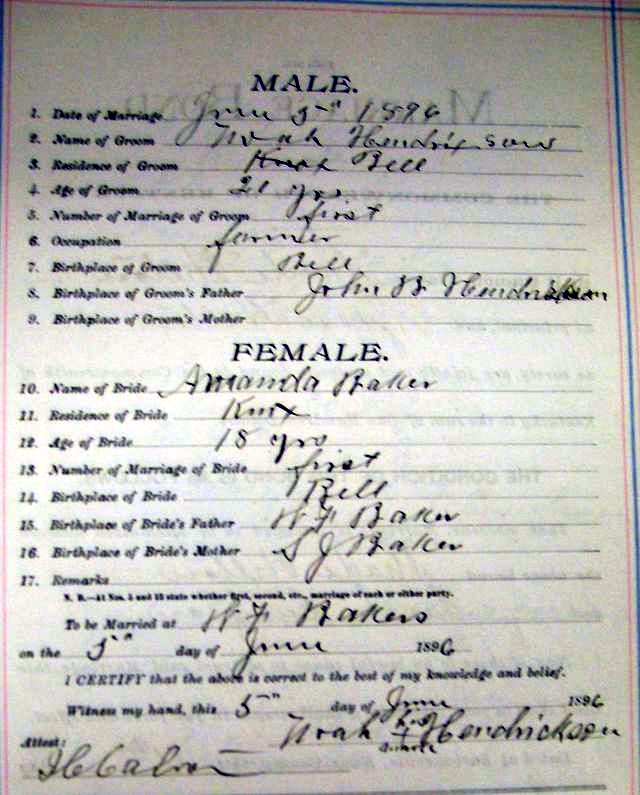 MALE.
1. Date of Marriage June 5" 1896
2. Name of Groom Noah Hendrixson
3. Residence of Groom Knox Bell
4. Age of Groom 21 yrs
5. Number of Marriage of Groom first
6. Occupation farmer
7. Birthplace of Groom Bell
8. Birthplace of Groom's Father John B Hendrickson
9. Birthplace of Groom's Mother
FEMALE.
10. Name of Bride Amanda Baker
11. Residence of Bride Knox
12. Age of Bride 18 yrs
13. Number of Marriage of Bride first
14. Birthplace of Bride Bell
15. Birthplace of Bride's Father W F Baker
16. Birthplace of Bride's Mother S J Baker
17. Remarks
N. B.—At Nos. 5 and 13 state whether first, second, etc., marriage of each or either party.
To be Married at W F Bakers
on the 5" day of June 1896
I CERTIFY that the above is correct to the best of my knowledge and belief.
Witness my hand, this 5" day of June 1896
Noah his Hendrickson
mark
Attest: